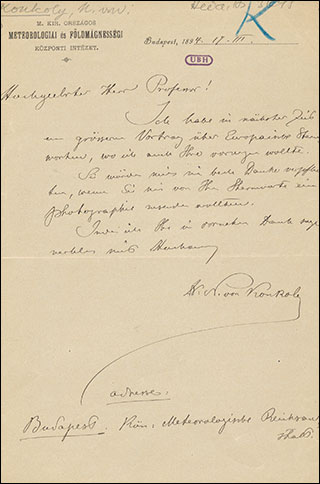 Konkoly, N. von.
M. KIR. ORSZÁGOS
METEOROLOGIAI és FÖLDMÁGNESSÉGI
KÖZPONTI INTÉZET.
Budapest, 1894. 17. III.
UBH
Hochgeehrter Herr Professor!
Ich habe in nächster Zeit
ein grösseren Vortrag über Europäische Stern
warten, wo ich auch Ihre vorzeigen wollte.
So würden Sie mich zu Danke verpflich
ten, wenn Sie mir von Ihrer Sternwarte ein
photographie senden wollten.
Indem ich Ihnen in vorneherein Danke sage
verbleibe mit Hochachtung
N. v. Konkoly
adresse.
Budapest. Kön. Meteorologische Reichsan
stalt.